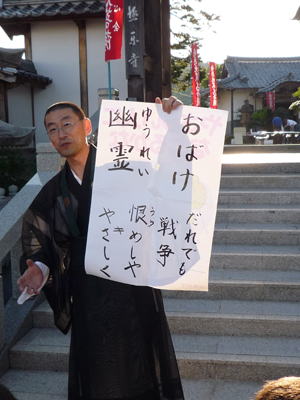 おばけ
だれでも
戦争
ゆうれい
幽霊
うら
恨めしや
き
やさしく
極楽寺